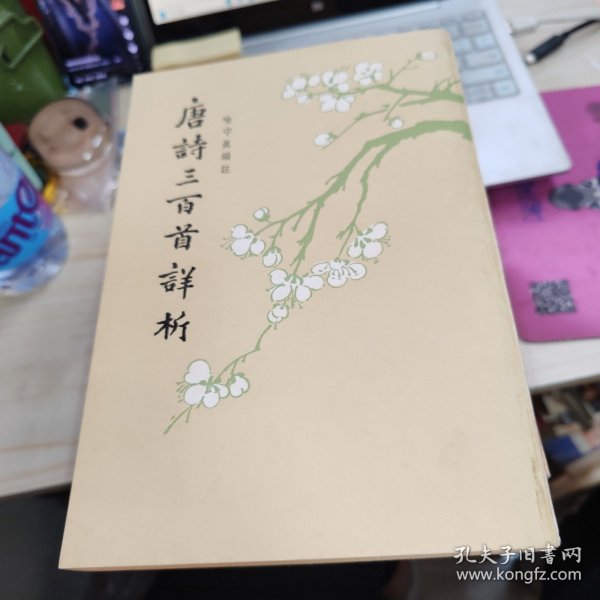 唐詩三百首詳析
喻守真編註
孔夫子旧书网
www.kongfz.com